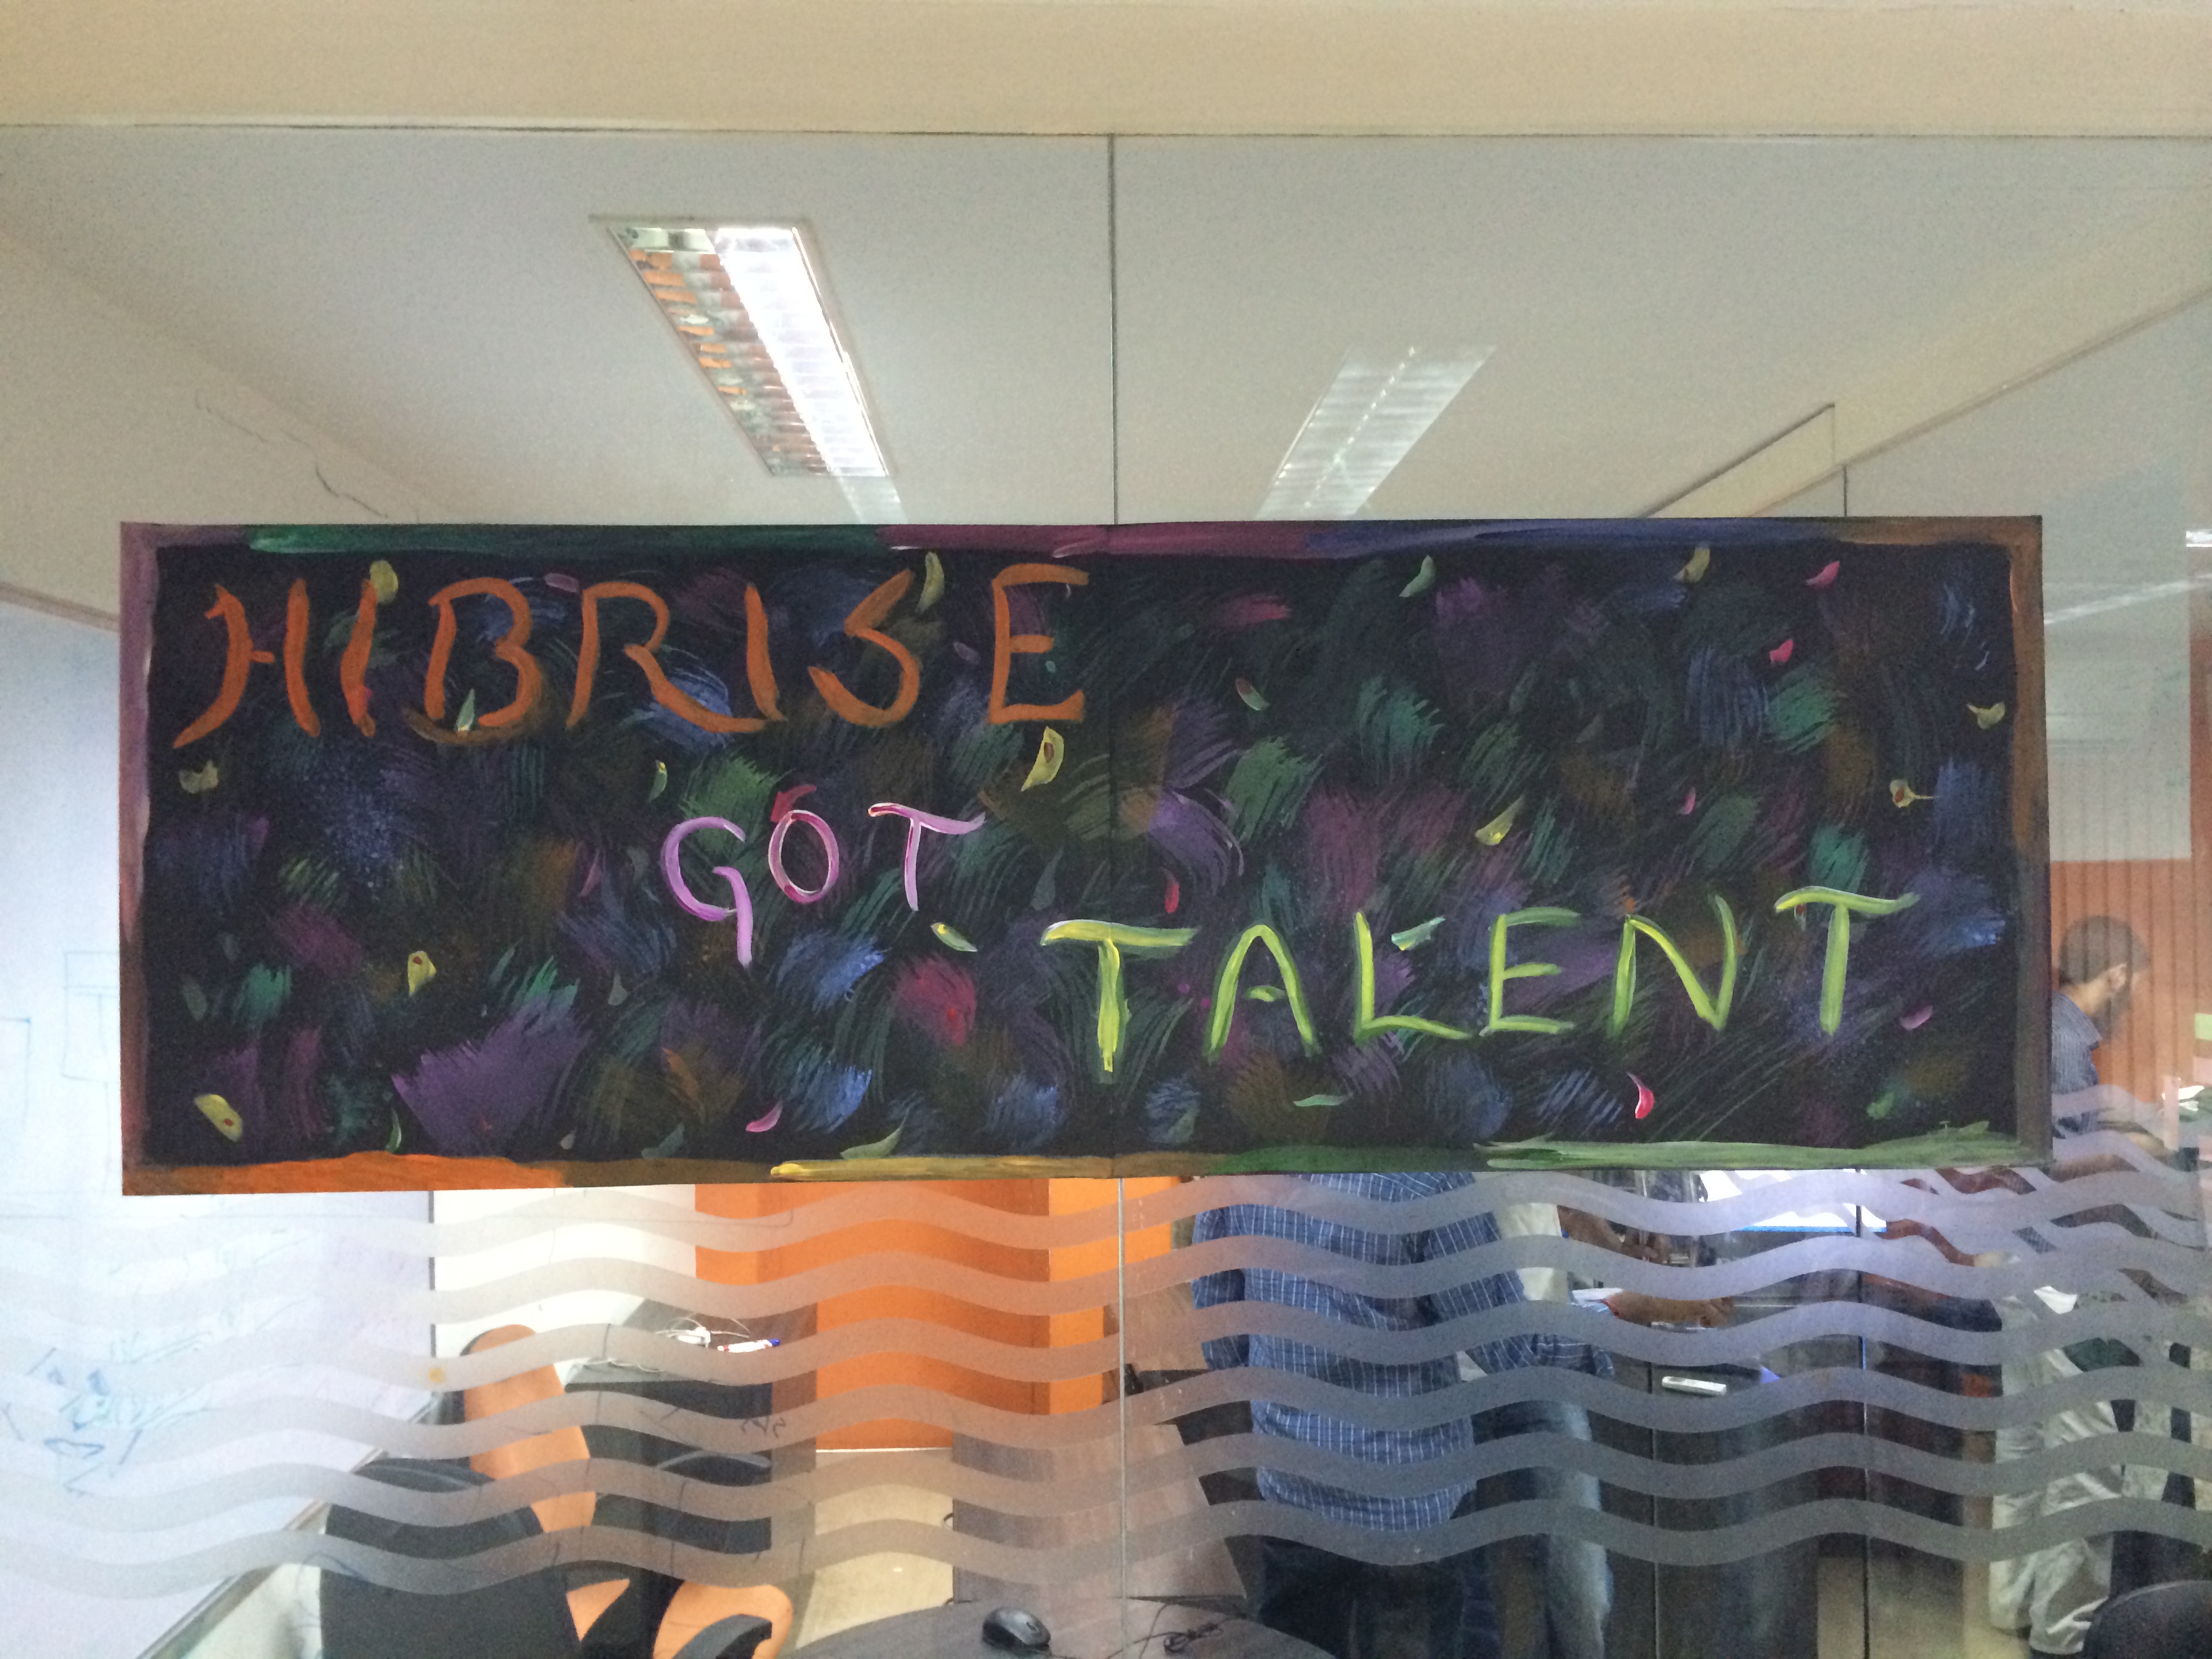 HIBRISE
GOT
TALENT